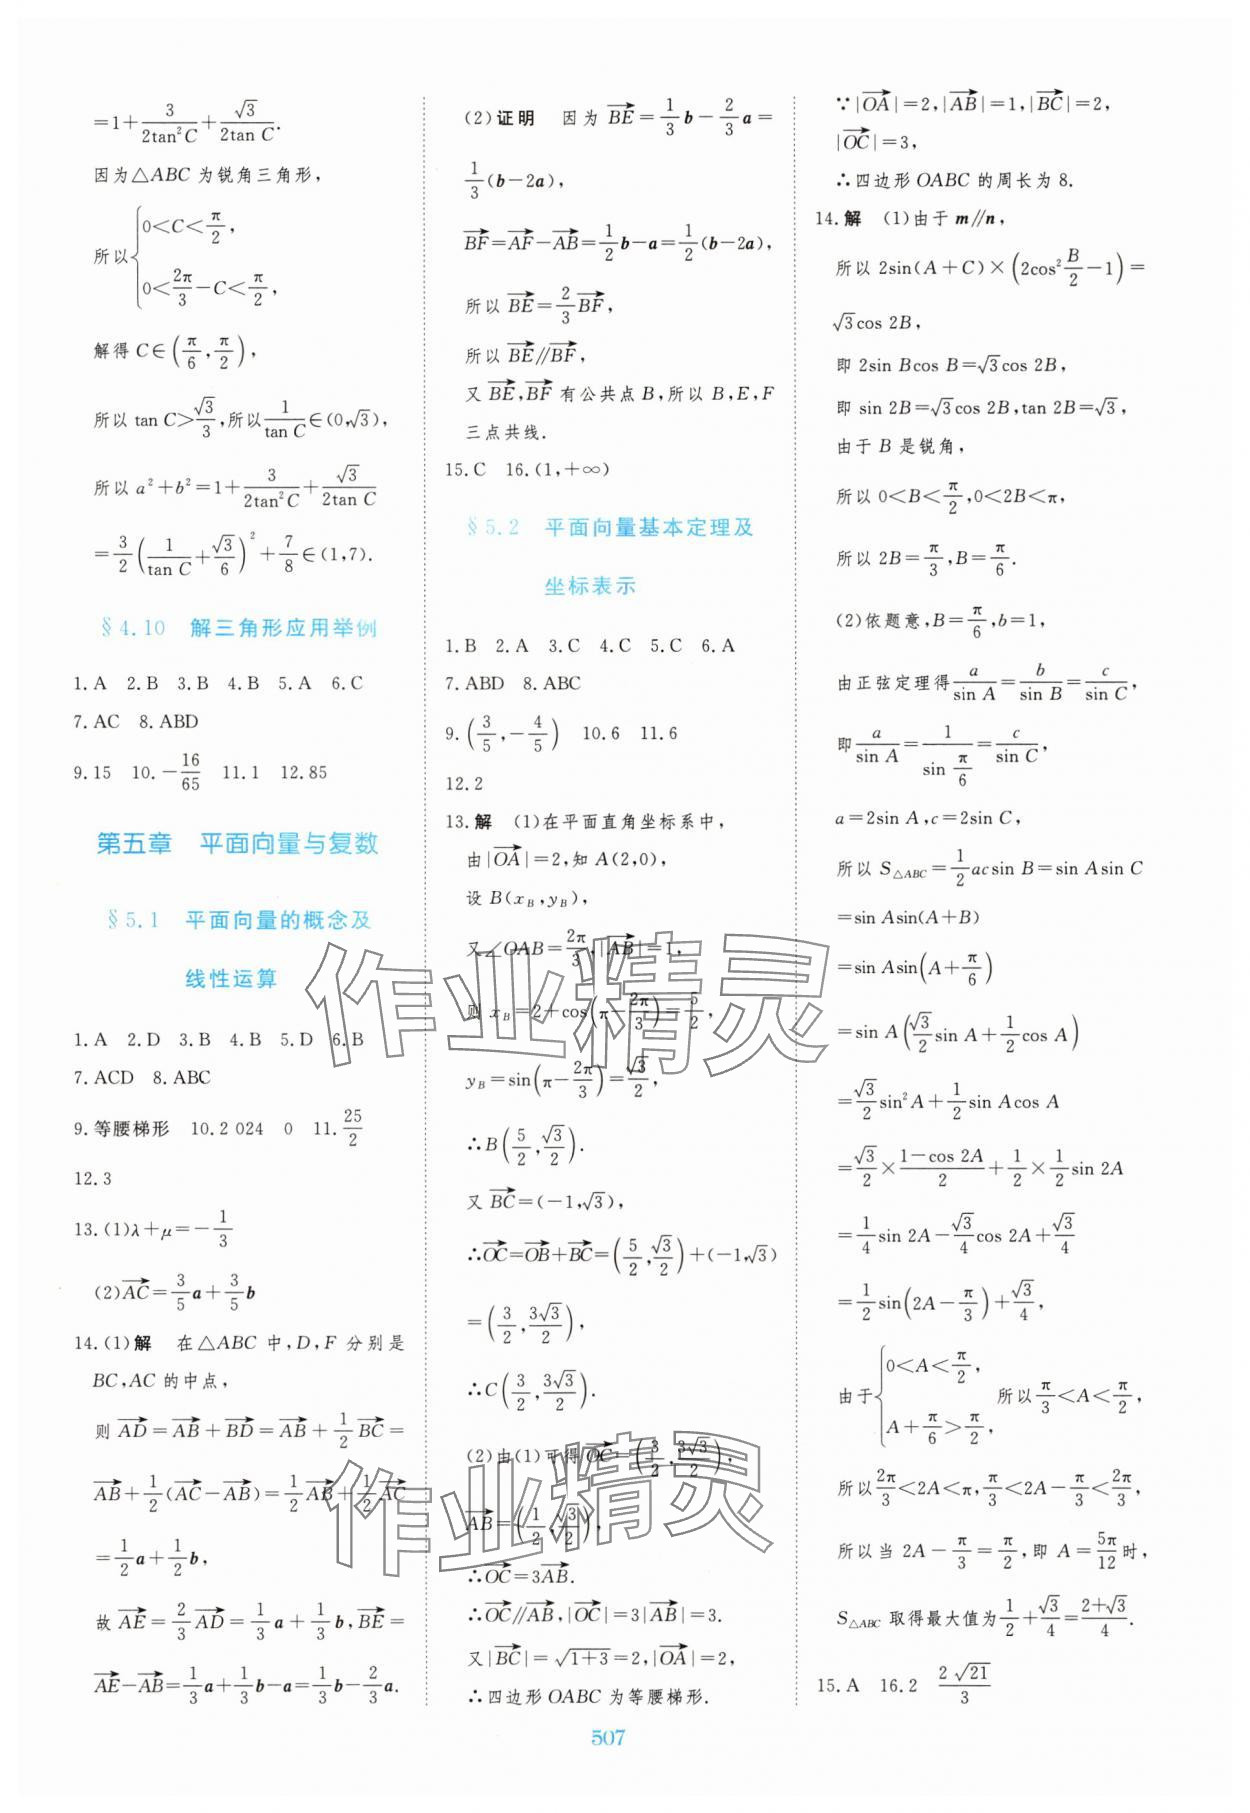 =1+3/(2tan²C)+√3/(2tan C).
因为△ABC 为锐角三角形，
所以{0<C<π/2,
0<2π/3-C<π/2,
解得 C∈(π/6,π/2),
所以 tan C>√3/3,所以1/tan C∈(0,√3),
所以 a²+b²=1+3/(2tan²C)+√3/(2tan C)
=3/2(1/tan C+√3/6)²+7/8∈(1,7).
§4.10 解三角形应用举例
1.A 2.B 3.B 4.B 5.A 6.C
7.AC 8.ABD
9.15 10.-16/65 11.1 12.85
第五章 平面向量与复数
§5.1 平面向量的概念及
线性运算
1.A 2.D 3.B 4.B 5.D 6.B
7.ACD 8.ABC
9.等腰梯形 10.2 024 0 11.25/2
12.3
13.(1)λ+μ=-1/3
(2)AC→=3/5a+3/5b
14.(1)解 在△ABC 中,D,F 分别是
BC,AC 的中点,
则 AD→=AB→+BD→=AB→+1/2BC→=
AB→+1/2(AC→-AB→)=1/2AB→+1/2AC→
=1/2a+1/2b,
故 AE→=2/3AD→=1/3a+1/3b,BE→=
AE→-AB→=1/3a+1/3b-a=1/3b-2/3a.
(2)证明 因为 BE→=1/3b-2/3a=
1/3(b-2a),
BF→=AF→-AB→=1/2b-a=1/2(b-2a),
所以 BE→=2/3BF→,
所以 BE→∥BF→,
又 BE→,BF→ 有公共点 B,所以 B,E,F
三点共线.
15.C 16.(1,+∞)
§5.2 平面向量基本定理及
坐标表示
1.B 2.A 3.C 4.C 5.C 6.A
7.ABD 8.ABC
9.(3/5,-4/5) 10.6 11.6
12.2
13.解 (1)在平面直角坐标系中,
由|OA→|=2,知 A(2,0),
设 B(x_B,y_B),
又∠OAB=2π/3,|AB→|=1,
则 x_B=2+cos(π-2π/3)=5/2,
y_B=sin(π-2π/3)=√3/2,
∴B(5/2,√3/2).
又 BC→=(-1,√3),
∴OC→=OB→+BC→=(5/2,√3/2)+(-1,√3)
=(3/2,3√3/2),
∴C(3/2,3√3/2).
(2)由(1)可得 OC→=(3/2,3√3/2),
AB→=(1/2,√3/2),
∴OC→=3AB→.
∴OC→∥AB→,|OC→|=3|AB→|=3.
又|BC→|=√(1+3)=2,|OA→|=2,
∴四边形 OABC 为等腰梯形.
∵|OA→|=2,|AB→|=1,|BC→|=2,
|OC→|=3,
∴四边形 OABC 的周长为 8.
14.解 (1)由于 m∥n,
所以 2sin(A+C)×(2cos²B/2-1)=
√3cos 2B,
即 2sin Bcos B=√3cos 2B,
即 sin 2B=√3cos 2B,tan 2B=√3,
由于 B 是锐角,
所以 0<B<π/2,0<2B<π,
所以 2B=π/3,B=π/6.
(2)依题意,B=π/6,b=1,
由正弦定理得a/sin A=b/sin B=c/sin C,
即a/sin A=1/sin(π/6)=c/sin C,
a=2sin A,c=2sin C,
所以 S△ABC=1/2acsin B=sin Asin C
=sin Asin(A+B)
=sin Asin(A+π/6)
=sin A(√3/2sin A+1/2cos A)
=√3/2sin²A+1/2sin Acos A
=√3/2×(1-cos 2A)/2+1/2×1/2sin 2A
=1/4sin 2A-√3/4cos 2A+√3/4
=1/2sin(2A-π/3)+√3/4,
由于{0<A<π/2,
A+π/6>π/2, 所以π/3<A<π/2,
所以2π/3<2A<π,π/3<2A-π/3<2π/3,
所以当 2A-π/3=π/2,即 A=5π/12时,
S△ABC 取得最大值为1/2+√3/4=(2+√3)/4.
15.A 16.2 2√21/3
507
作业精灵
作业精灵